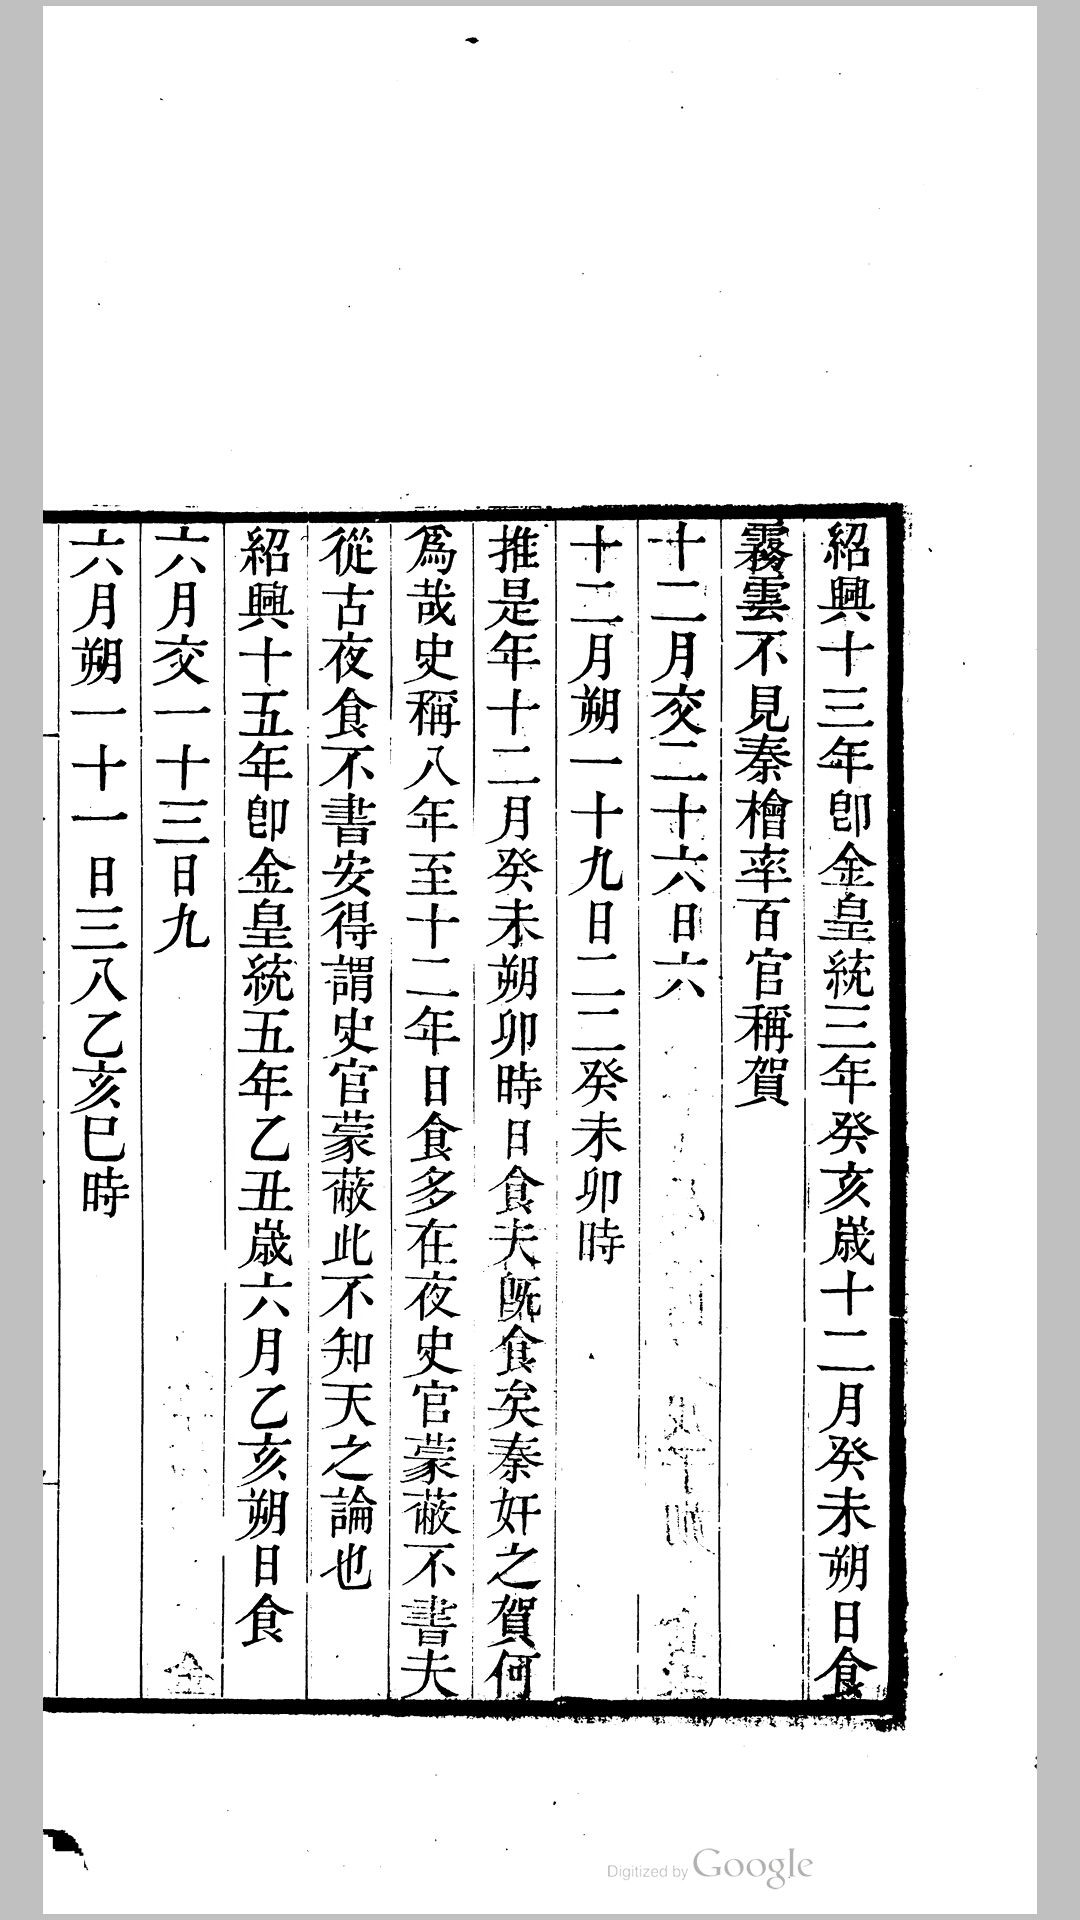 紹興十三年卽金皇統三年癸亥嵗十二月癸未朔日食
霧雲不見秦檜率百官稱賀
十二月交二十六日六
十二月朔一十九日二二癸未卯時
推是年十二月癸未朔卯時日食夫旣食矣秦奸之賀何
爲哉史稱八年至十二年日食多在夜史官蒙蔽不書夫
從古夜食不書安得謂史官蒙蔽此不知天之論也
紹興十五年卽金皇統五年乙丑嵗六月乙亥朔日食
六月交一十三日九
六月朔一十一日三八乙亥巳時
Digitized by Google